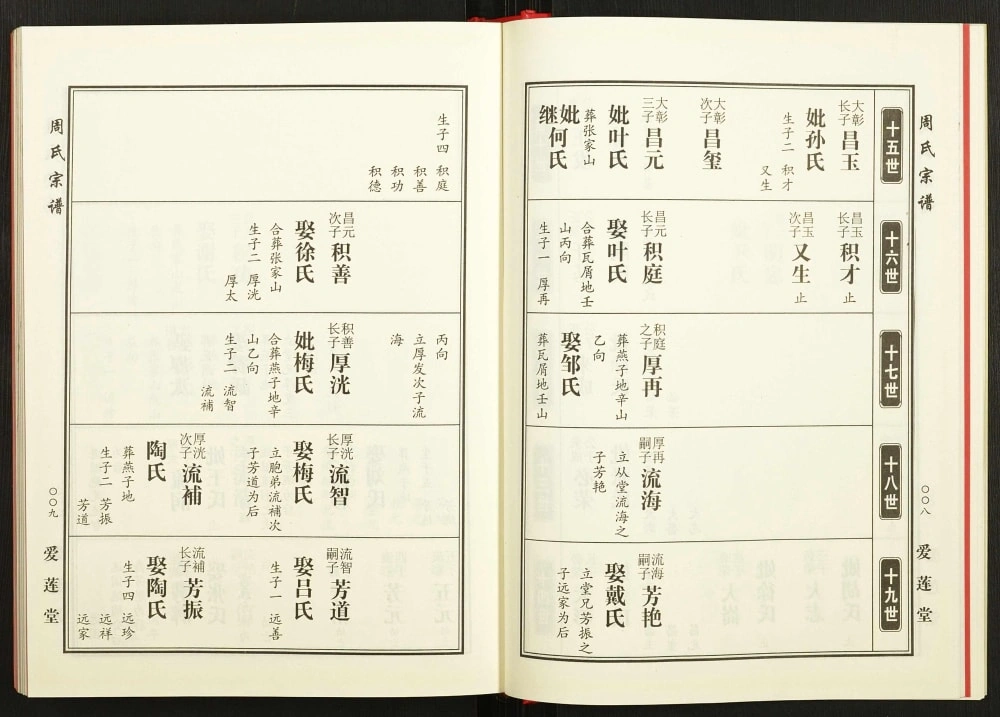 周氏宗谱
〇〇八
爱莲堂
十五世
大彰
长子
昌玉
妣孙氏
生子二 积才
又生
大彰
次子
昌玺
大彰
三子
昌元
妣叶氏
葬张家山
妣
继何氏
十六世
昌玉
长子
积才 止
昌玉
次子
又生 止
昌元
长子
积庭
娶叶氏
合葬瓦屑地壬
山丙向
生子一 厚再
十七世
积庭
之子
厚再
葬燕子地辛山
乙向
娶邹氏
葬瓦屑地壬山
十八世
厚再
嗣子
流海
立从堂流海之
子芳艳
十九世
流海
嗣子
芳艳
娶戴氏
立堂兄芳振之
子远家为后
生子四 积庭
积善
积功
积德
昌元
次子
积善
娶徐氏
合葬张家山
生子二 厚洸
厚太
丙向
立厚发次子流
海
积善
长子
厚洸
妣梅氏
合葬燕子地辛
山乙向
生子二 流智
流補
厚洸
长子
流智
娶梅氏
立胞弟流補次
子芳道为后
厚洸
次子
流補
陶氏
葬燕子地
生子二 芳振
芳道
流智
嗣子
芳道
娶吕氏
生子一 远善
流補
长子
芳振
娶陶氏
生子四 远珍
远祥
远家
周氏宗谱
〇〇九
爱莲堂